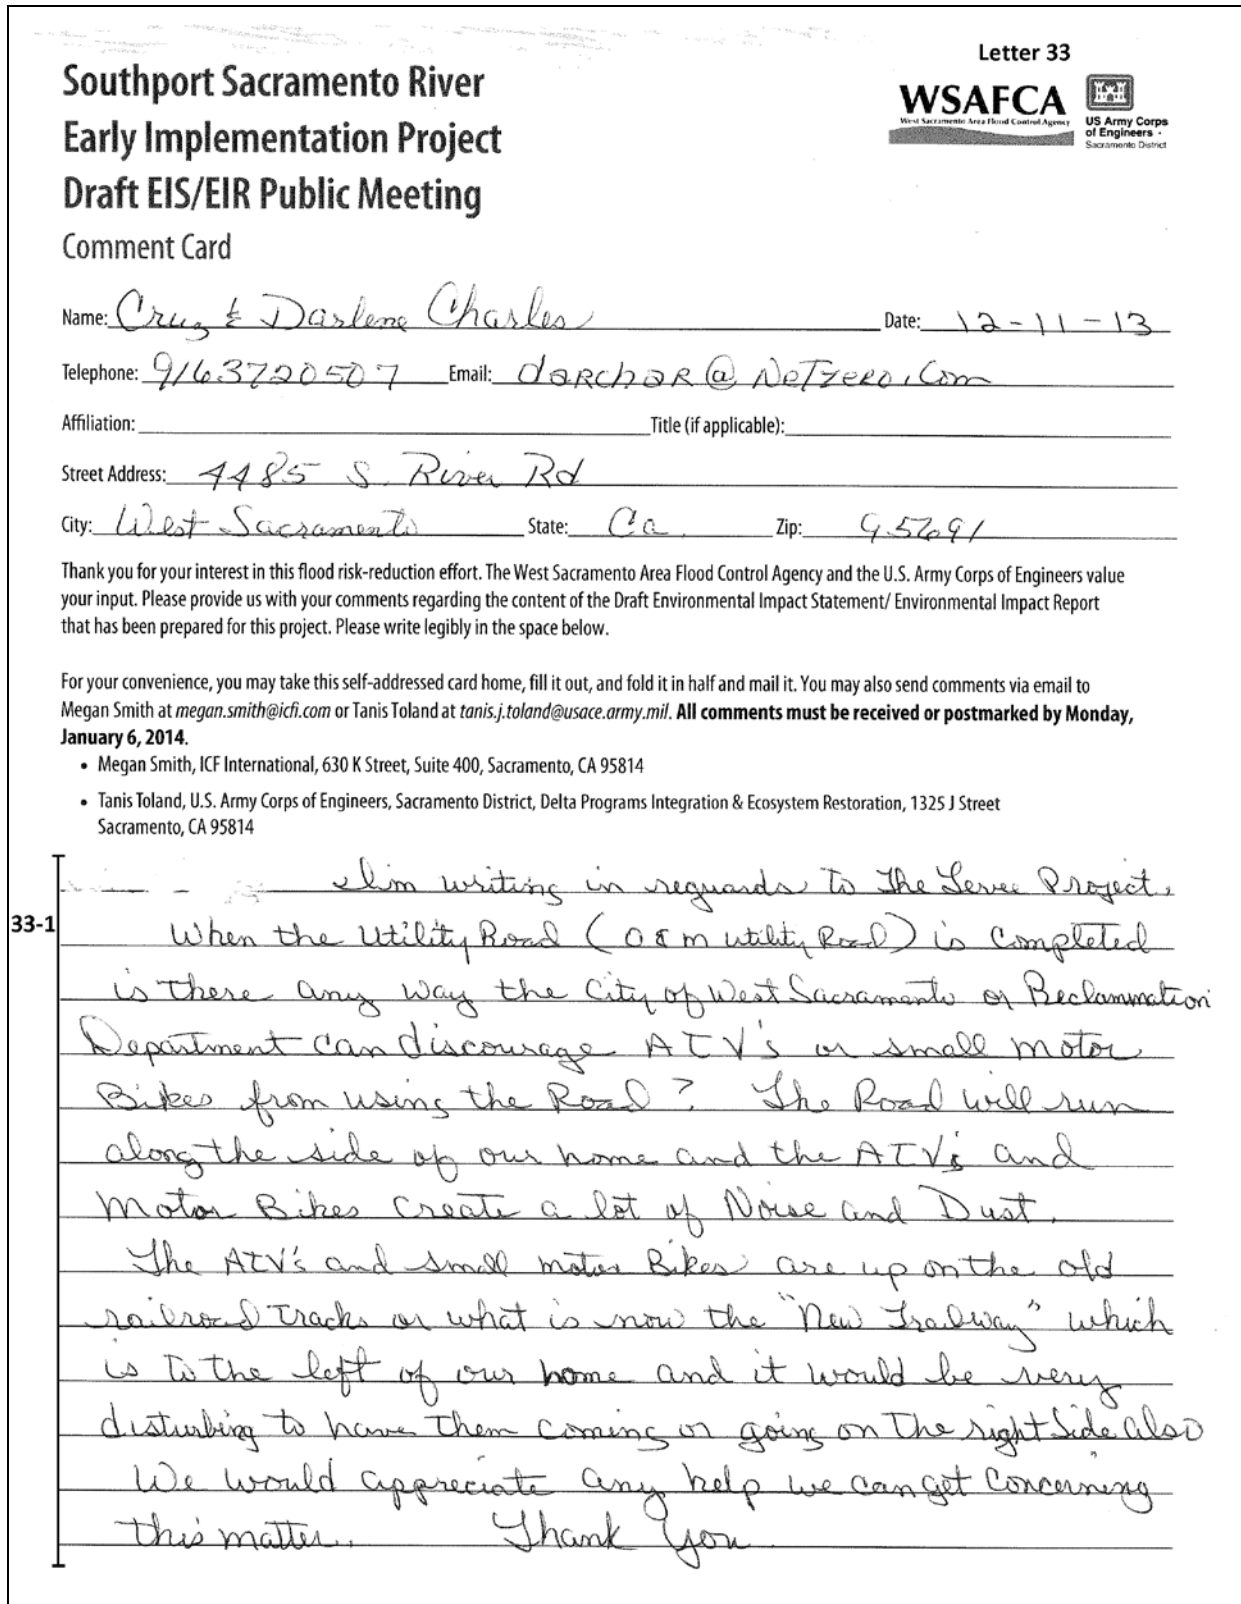 Letter 33
Southport Sacramento River
Early Implementation Project
Draft EIS/EIR Public Meeting
Comment Card
WSAFCA
West Sacramento Area Flood Control Agency
US Army Corps
of Engineers
Sacramento District
Name: Cruz & Darlene Charles Date: 12-11-13
Telephone: 9163720507 Email: darchar@Netzero.Com
Affiliation: Title (if applicable):
Street Address: 4485 S. River Rd
City: West Sacramento State: Ca Zip: 95691
Thank you for your interest in this flood risk-reduction effort. The West Sacramento Area Flood Control Agency and the U.S. Army Corps of Engineers value
your input. Please provide us with your comments regarding the content of the Draft Environmental Impact Statement/ Environmental Impact Report
that has been prepared for this project. Please write legibly in the space below.
For your convenience, you may take this self-addressed card home, fill it out, and fold it in half and mail it. You may also send comments via email to
Megan Smith at megan.smith@icfi.com or Tanis Toland at tanis.j.toland@usace.army.mil. All comments must be received or postmarked by Monday,
January 6, 2014.
• Megan Smith, ICF International, 630 K Street, Suite 400, Sacramento, CA 95814
• Tanis Toland, U.S. Army Corps of Engineers, Sacramento District, Delta Programs Integration & Ecosystem Restoration, 1325 J Street
Sacramento, CA 95814
I'm writing in reguards to The Levee Project.
33-1
When the Utility Road (O & m utility Road) is Completed
is there any way the City of West Sacramento or Reclammation
Department can discourage ATV's or small motor
Bikes from using the Road? The Road will run
along the side of our home and the ATV's and
motor Bikes create a lot of Noise and Dust.
The ATV's and small motor Bikes are up on the old
railroad tracks or what is now the "New Trailway" which
is to the left of our home and it would be very
disturbing to have them coming or going on the right side also.
We would appreciate any help we can get concerning
this matter. Thank You